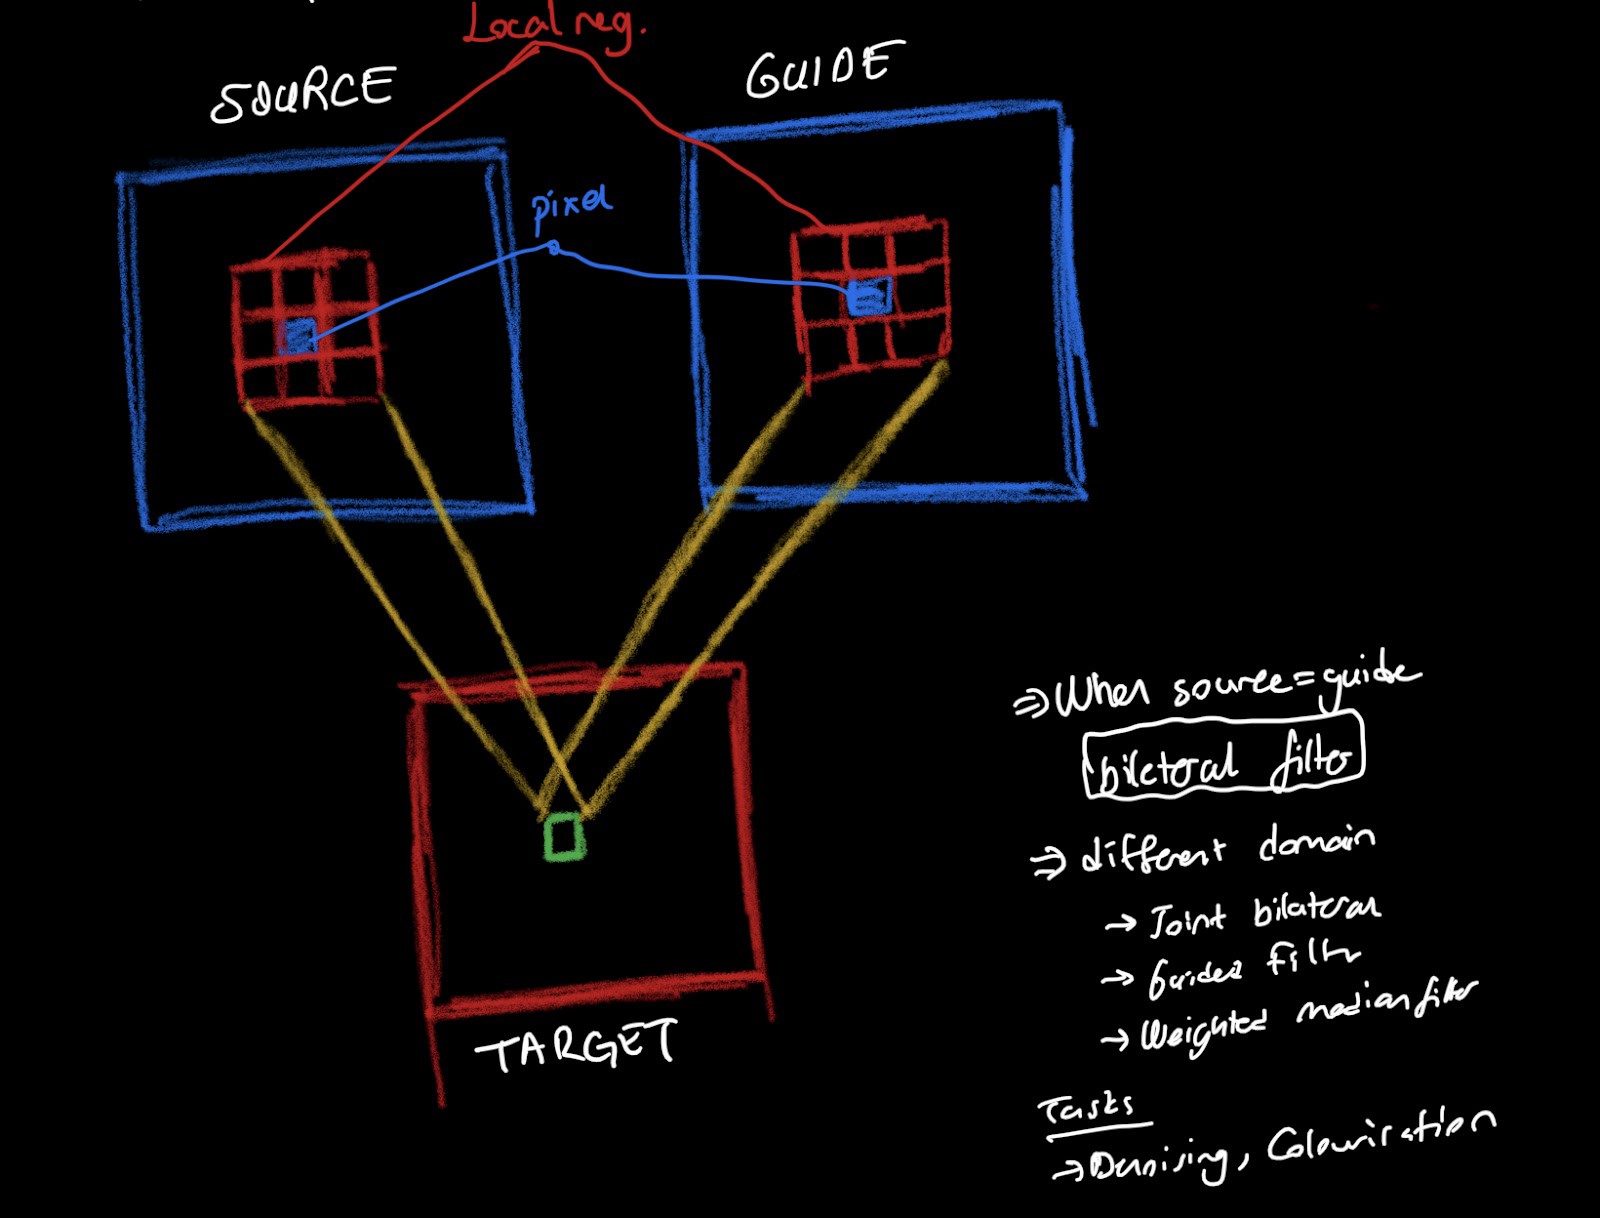 Local reg.
SOURCE
GUIDE
pixel
⇒ When source = guide
bilateral filter
⇒ different domain
→ Joint bilateral
→ Guided filter
→ Weighted median filter
Tasks
→ Denoising, Colourisation
TARGET